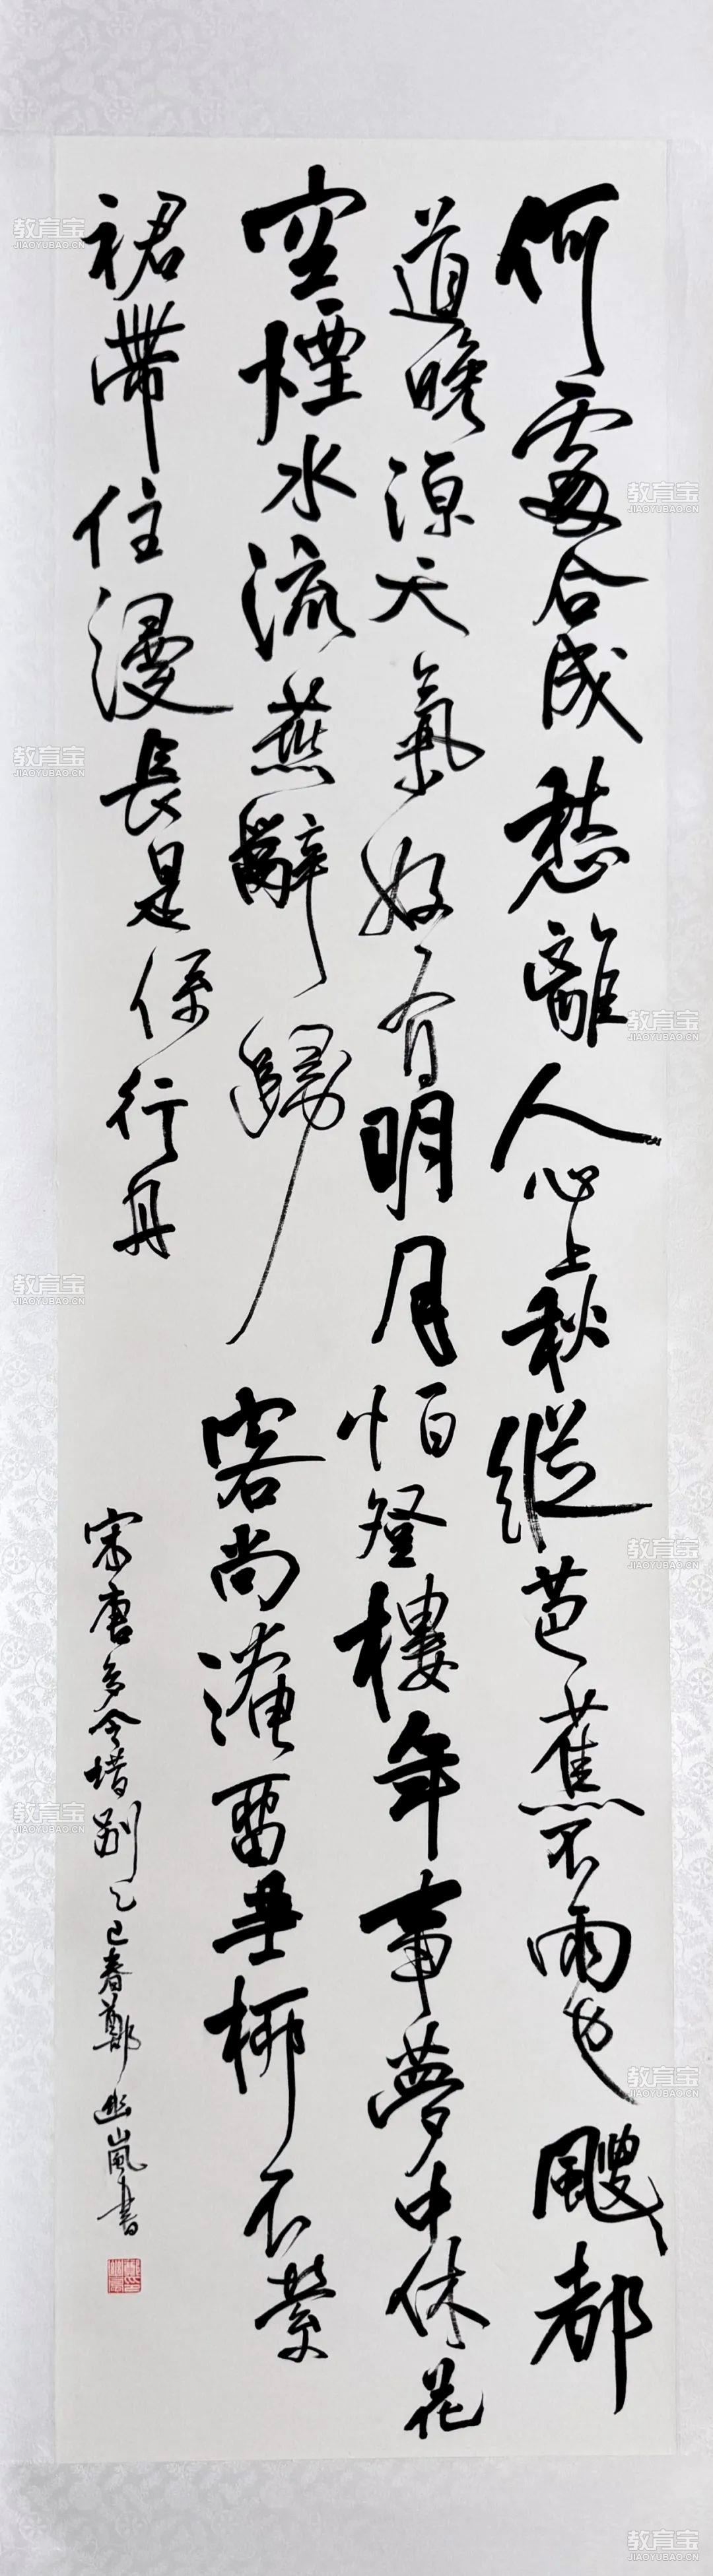 何處合成愁離人心上秋縱芭蕉不雨也颼都
道晚涼天氣好有明月怕登樓年事夢中休花
空煙水流燕辭歸客尚淹留垂柳不縈
裙帶住漫長是係行舟
宋唐多令惜別乙巳春鄭幽嵐書
教育宝
JIAOYUBAO.CN